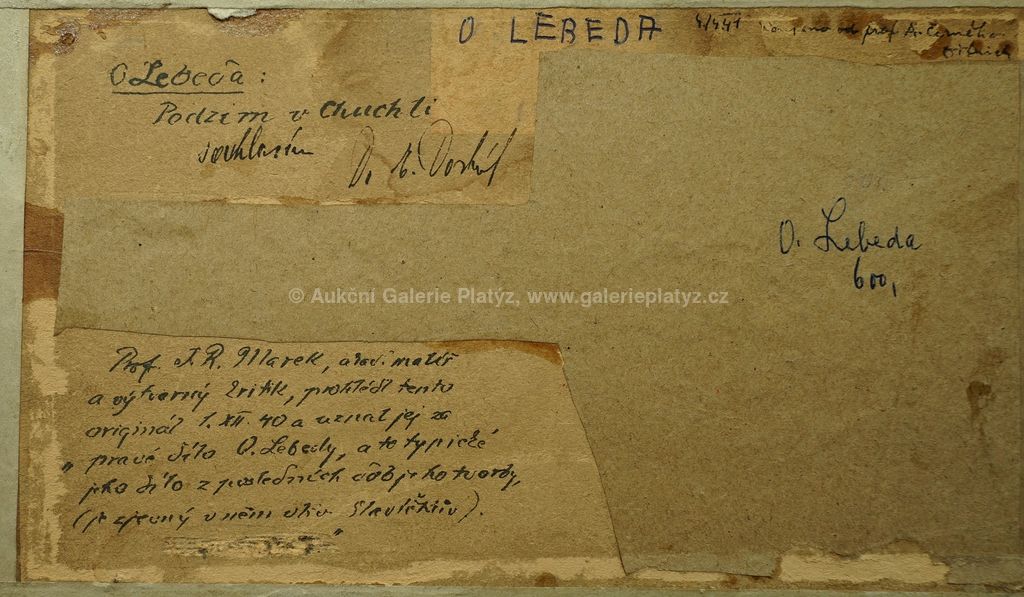 O LEBEDA 4/441 Koupeno od prof. A. Černého
O Lebeda:
Podzim v Chuchli
souhlasím D. E. Dostál
O. Lebeda
600,
© Aukční Galerie Platýz, www.galerieplatyz.cz
Prof. J. R. Marek, akad. malíř
a výtvarný kritik, prohlédl tento
originál 1. XII. 40 a uznal jej za
„pravé dílo O. Lebedy, a to typické
jeho dílo z posledních dob jeho tvorby,
(je zjevný v něm vliv Slavíčkův).
"